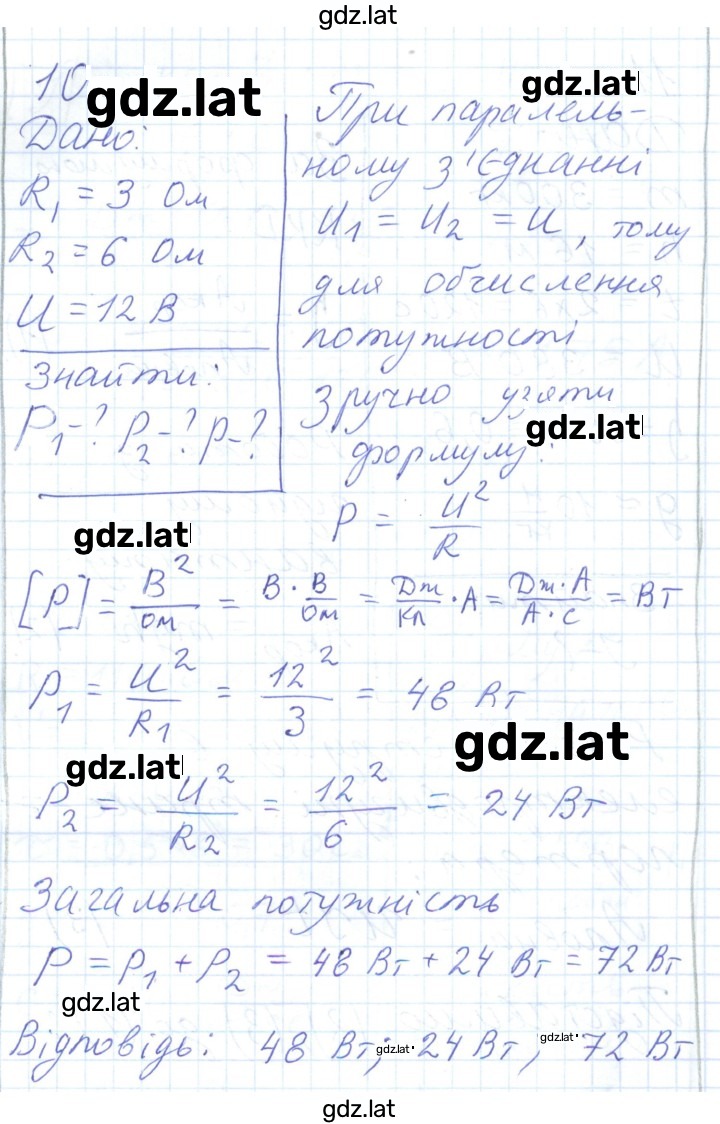 gdz.lat
10
gdz.lat
Дано:
R₁ = 3 Ом
R₂ = 6 Ом
U = 12 В
Знайти:
P₁-? P₂-? P-?
gdz.lat
При паралель-
ному з'єднанні
U₁ = U₂ = U, тому
для обчислення
потужності
зручно узяти
gdz.lat
формулу:
P = U²/R
gdz.lat
[P] = В²/Ом = В · В/Ом = Дж/Кл · А = Дж·А/А·с = Вт
P₁ = U²/R₁ = 12²/3 = 48 Вт
gdz.lat
gdz.lat
P₂ = U²/R₂ = 12²/6 = 24 Вт
Загальна потужність
P = P₁ + P₂ = 48 Вт + 24 Вт = 72 Вт
gdz.lat
Відповідь: 48 Вт; 24 Вт, 72 Вт
gdz.lat
gdz.lat
gdz.lat